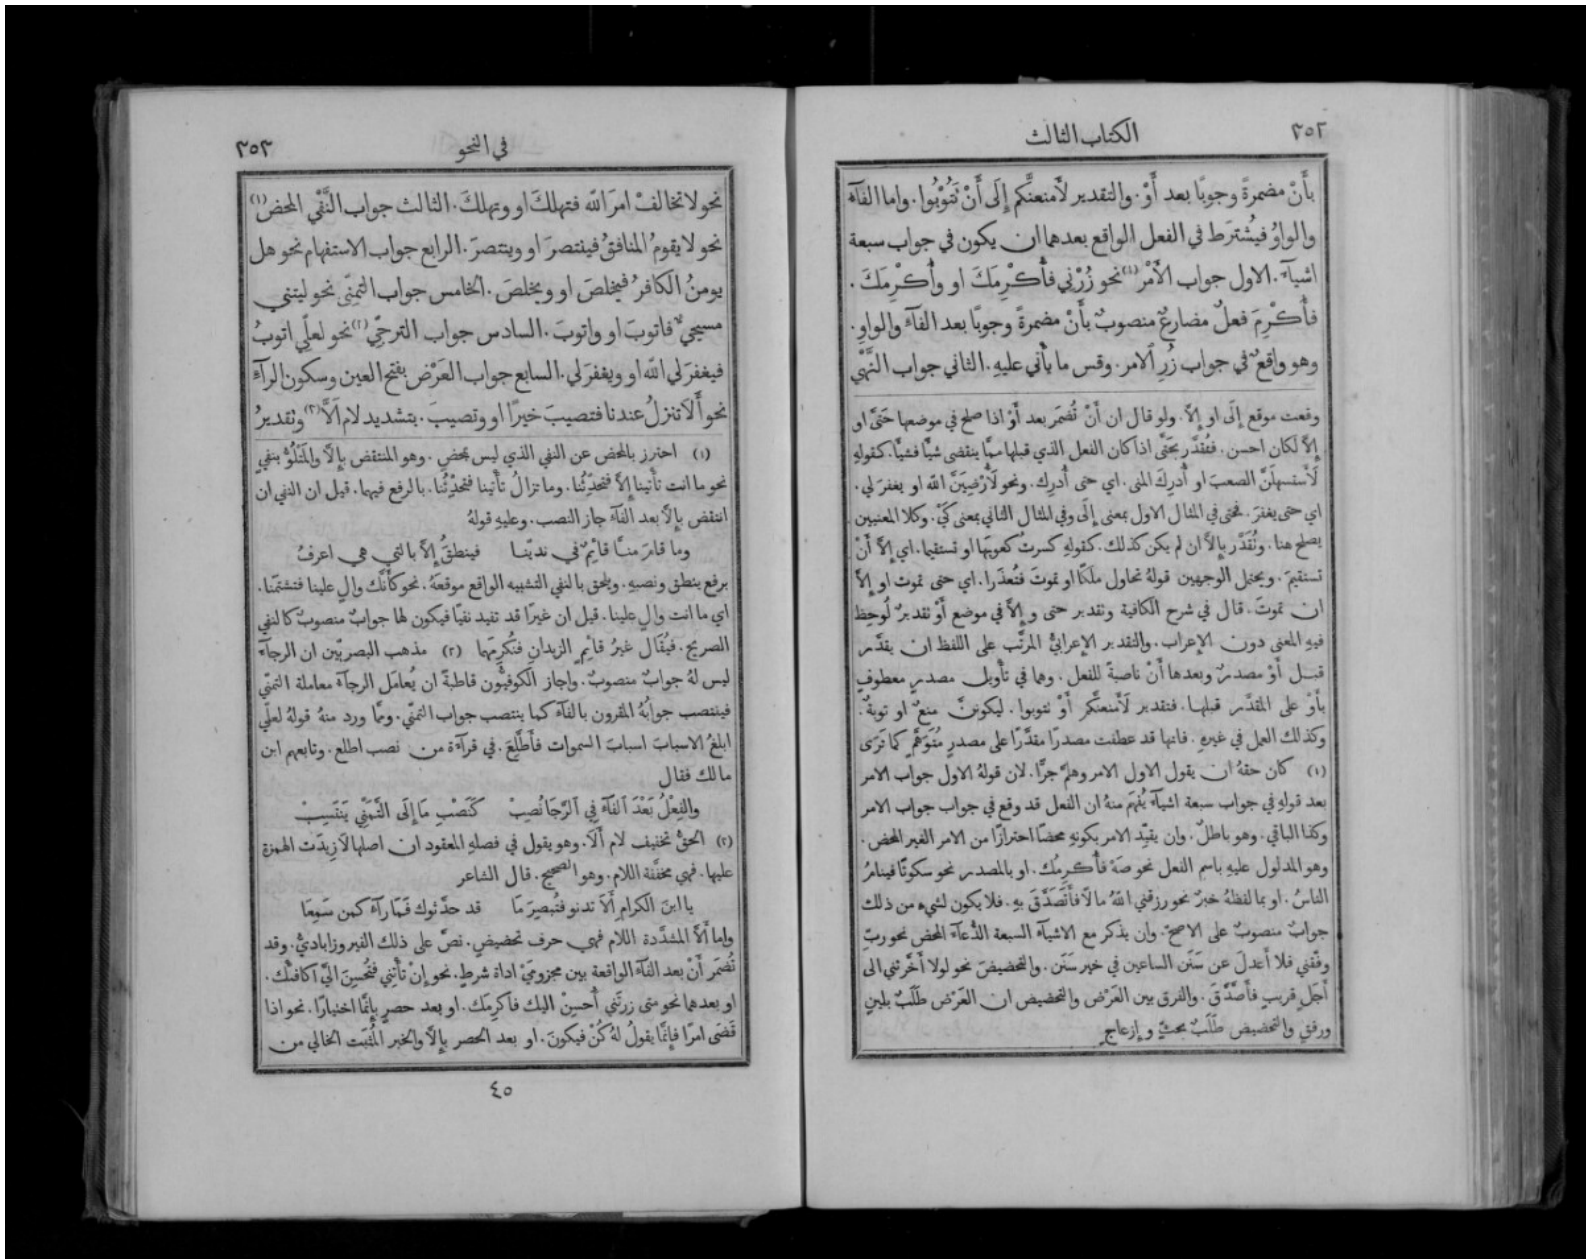 ٣٥٢
الكتاب الثالث
بأَنْ مضمرةً وجوبًا بعد أَوْ. والتقدير لأَمنعنَّكم إِلَى أَنْ تَتُوْبُوا. واما الفآءُ
والواوُ فيُشْترَط في الفعل الواقع بعدهما ان يكون في جواب سبعة
اشيآءَ. الاول جواب الأَمْرِ (١) نحو زُرْني فأُكْرِمَكَ او وأُكْرِمَكَ.
فأُكْرِمَ فعلٌ مضارعٌ منصوبٌ بأَنْ مضمرةً وجوبًا بعد الفآءِ والواوِ.
وهو واقعٌ في جواب زُرِ الامر. وقس ما يأتي عليهِ. الثاني جواب النَّهْيِ
وقعت موقع إِلَى او إِلاَّ. ولو قال ان أَنْ تُضمَر بعد أَوْ اذا صلح في موضعها حَتَّى او
إِلاَّ لكان احسن. فتُقدَّر بحَتَّى اذا كان الفعل الذي قبلها ممَّا ينقضي شيئًا فشيئًا. كقولهِ
لَأَستسهلَنَّ الصعبَ او أُدرِكَ المنى. اي حتى أُدرِك. ونحو لَأُرْضِيَنَّ الله او يغفرَ لي.
اي حتى يغفرَ. فحتى في المثال الاول بمعنى إِلَى وفي المثال الثاني بمعنى كَيْ. وكلا المعنيين
يصلح هنا. وتُقدَّر بإِلاَّ ان لم يكن كذلك. كقولهِ كسرتُ كعوبَها او تستقيما. اي إِلاَّ أَنْ
تستقيمَ. ويحتمل الوجهين قولهُ نحاول ملكًا او نموتَ فنُعذَرا. اي حتى نموت او إِلاَّ
ان نموتَ. قال في شرح الكافية وتقدير حتى وإِلاَّ في موضع أَوْ تقديرٌ لُوحِظ
فيهِ المعنى دون الإِعراب. والتقدير الإِعرابيُّ المرتَّب على اللفظ ان يقدَّر
قبل أَوْ مصدرٌ وبعدها أَنْ ناصبةً للفعل. وهما في تأْويل مصدرٍ معطوفٍ
بأَوْ على المقدَّر قبلها. فتقدير لَأَمنعنَّكم أَوْ تتوبوا. ليكوننَّ منعٌ او توبةٌ.
وكذلك العمل في غيرهِ. فانها قد عطفت مصدرًا مقدَّرًا على مصدرٍ مُتَوَهَّمٍ كما تَرَى
(١) كان حقهُ ان يقول الاول الامر وهلمَّ جرًّا. لان قولهُ الاول جواب الامر
بعد قولهِ في جواب سبعة اشيآءَ يُفهَم منهُ ان الفعل قد وقع في جواب جواب الامر
وكذا الباقي. وهو باطلٌ. وان يقيِّد الامر بكونهِ محضًا احترازًا من الامر الغير المحض.
وهو المدلول عليهِ باسم الفعل نحو صَهْ فأُكرمُك. او بالمصدر نحو سكوتًا فينامُ
الناسُ. او بما لفظهُ خبرٌ نحو رزقني اللهُ مالاً فأَتصَدَّقُ بهِ. فلا يكون لشيءٍ من ذلك
جوابٌ منصوبٌ على الاصحّ. وان يذكر مع الاشيآءِ السبعة الدُّعآءَ المحض نحو ربِّ
وفّقني فلا أَعدلَ عن سَنَن الساعين في خير سَنَن. والتحضيضَ نحو لولا أَخَّرتني الى
أَجَلٍ قريبٍ فأَصَّدَّقَ. والفرق بين العَرْض والتحضيض ان العَرْض طَلَبٌ بلينٍ
ورفقٍ والتحضيض طَلَبٌ بحثٍّ وإِزعاجٍ
في النحو
٣٥٣
نحو لا تخالفْ امرَ الله فتهلكَ او وتهلكَ. الثالث جواب النَّفْيِ المحض (١)
نحو لا يقومُ المنافقُ فينتصرَ او وينتصرَ. الرابع جواب الاستفهام نحو هل
يومنُ الكافرُ فيخلصَ او ويخلصَ. الخامس جواب التمنّي نحو ليتني
مسيحيٌّ فاتوبَ او واتوبَ. السادس جواب الترجّي (٢) نحو لعلّي اتوبُ
فيغفرَ لي الله او ويغفرَ لي. السابع جواب العَرْض بفتح العين وسكون الرآءِ
نحو أَلاَّ تنزلُ عندنا فتصيبَ خيرًا او وتصيبَ. بتشديد لام أَلاَّ (٣) وتقديرُ
(١) احترز بالمحض عن النفي الذي ليس بمحضٍ. وهو المنتقض بإِلاَّ والمَتْلُوُّ بنفيٍ
نحو ما انت تأْتينا إِلاَّ فتحدّثُنا. وما تزالُ تأْتينا فتحدّثُنا. بالرفع فيهما. قيل ان النفي ان
انتقض بإِلاَّ بعد الفآءِ جاز النصب. وعليهِ قولهُ
وما قامَ منَّا قائِمٌ في نديّنا فينطقُ إِلاَّ بالتي هي اعرفُ
برفع ينطق ونصبهِ. ويلحق بالنفي التشبيه الواقع موقعَهُ. نحو كأَنَّك والٍ علينا فتشتمَنا.
اي ما انت والٍ علينا. قيل ان غيرًا قد تفيد نفيًا فيكون لها جوابٌ منصوبٌ كالنفي
الصريح. فيُقَال غيرُ قائِمٍ الزيدانِ فنُكرِمَهما (٢) مذهب البصريّين ان الرجآءَ
ليس لهُ جوابٌ منصوبٌ. واجاز الكوفيُّون قاطبةً ان يُعامَل الرجآءُ معاملة التمنّي
فينتصب جوابُهُ المقرون بالفآءِ كما ينتصب جواب التمنّي. وممَّا ورد منهُ قولهُ لعلّي
ابلغُ الاسبابَ اسبابَ السموات فأَطَّلِعَ. في قرآءَة من نصب اطلع. وتابعهم ابن
مالك فقال
والفِعْلُ بَعْدَ الفآءِ فِي الرَّجَا نُصِبْ كَنَصْبِ مَا إِلَى التَّمَنِّي يَنْتَسِبْ
(٣) الحقُّ تخفيف لام أَلاَ. وهو يقول في فصلهِ المعقود ان اصلها لا زيدَت الهمزة
عليها. فهي مخفَّفة اللام. وهو الصحيح. قال الشاعر
يا ابنَ الكرامِ أَلاَ تدنو فتُبصِرَ مَا قد حدَّثوك فَمَا رآءٍ كمن سَمِعَا
واما أَلاَّ المشدَّدة اللام فهي حرف تحضيضٍ. نصَّ على ذلك الفيروزاباديُّ. وقد
تُضمَر أَنْ بعد الفآءِ الواقعة بين مجزومَيْ اداة شرطٍ. نحو إِنْ تأْتِني فتُحسِنَ اليَّ اكافئْك.
او بعدهما نحو متى زرتَني أُحسِنْ اليك فأُكرِمَك. او بعد حصرٍ بإِنَّما اختيارًا. نحو اذا
قَضَى امرًا فإِنَّما يقولُ لهُ كُنْ فيكونَ. او بعد الحصر بإِلاَّ والخبر المُثبَت الخالي من
٤٥